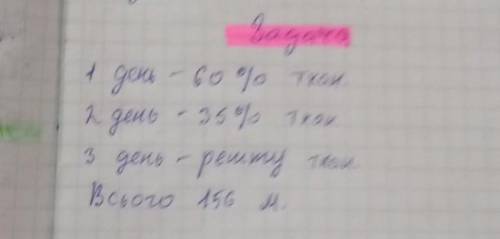 Задача
1 день - 60 % ткан.
2 день - 35% ткан.
3 день - решту ткан.
Всього 156 м.